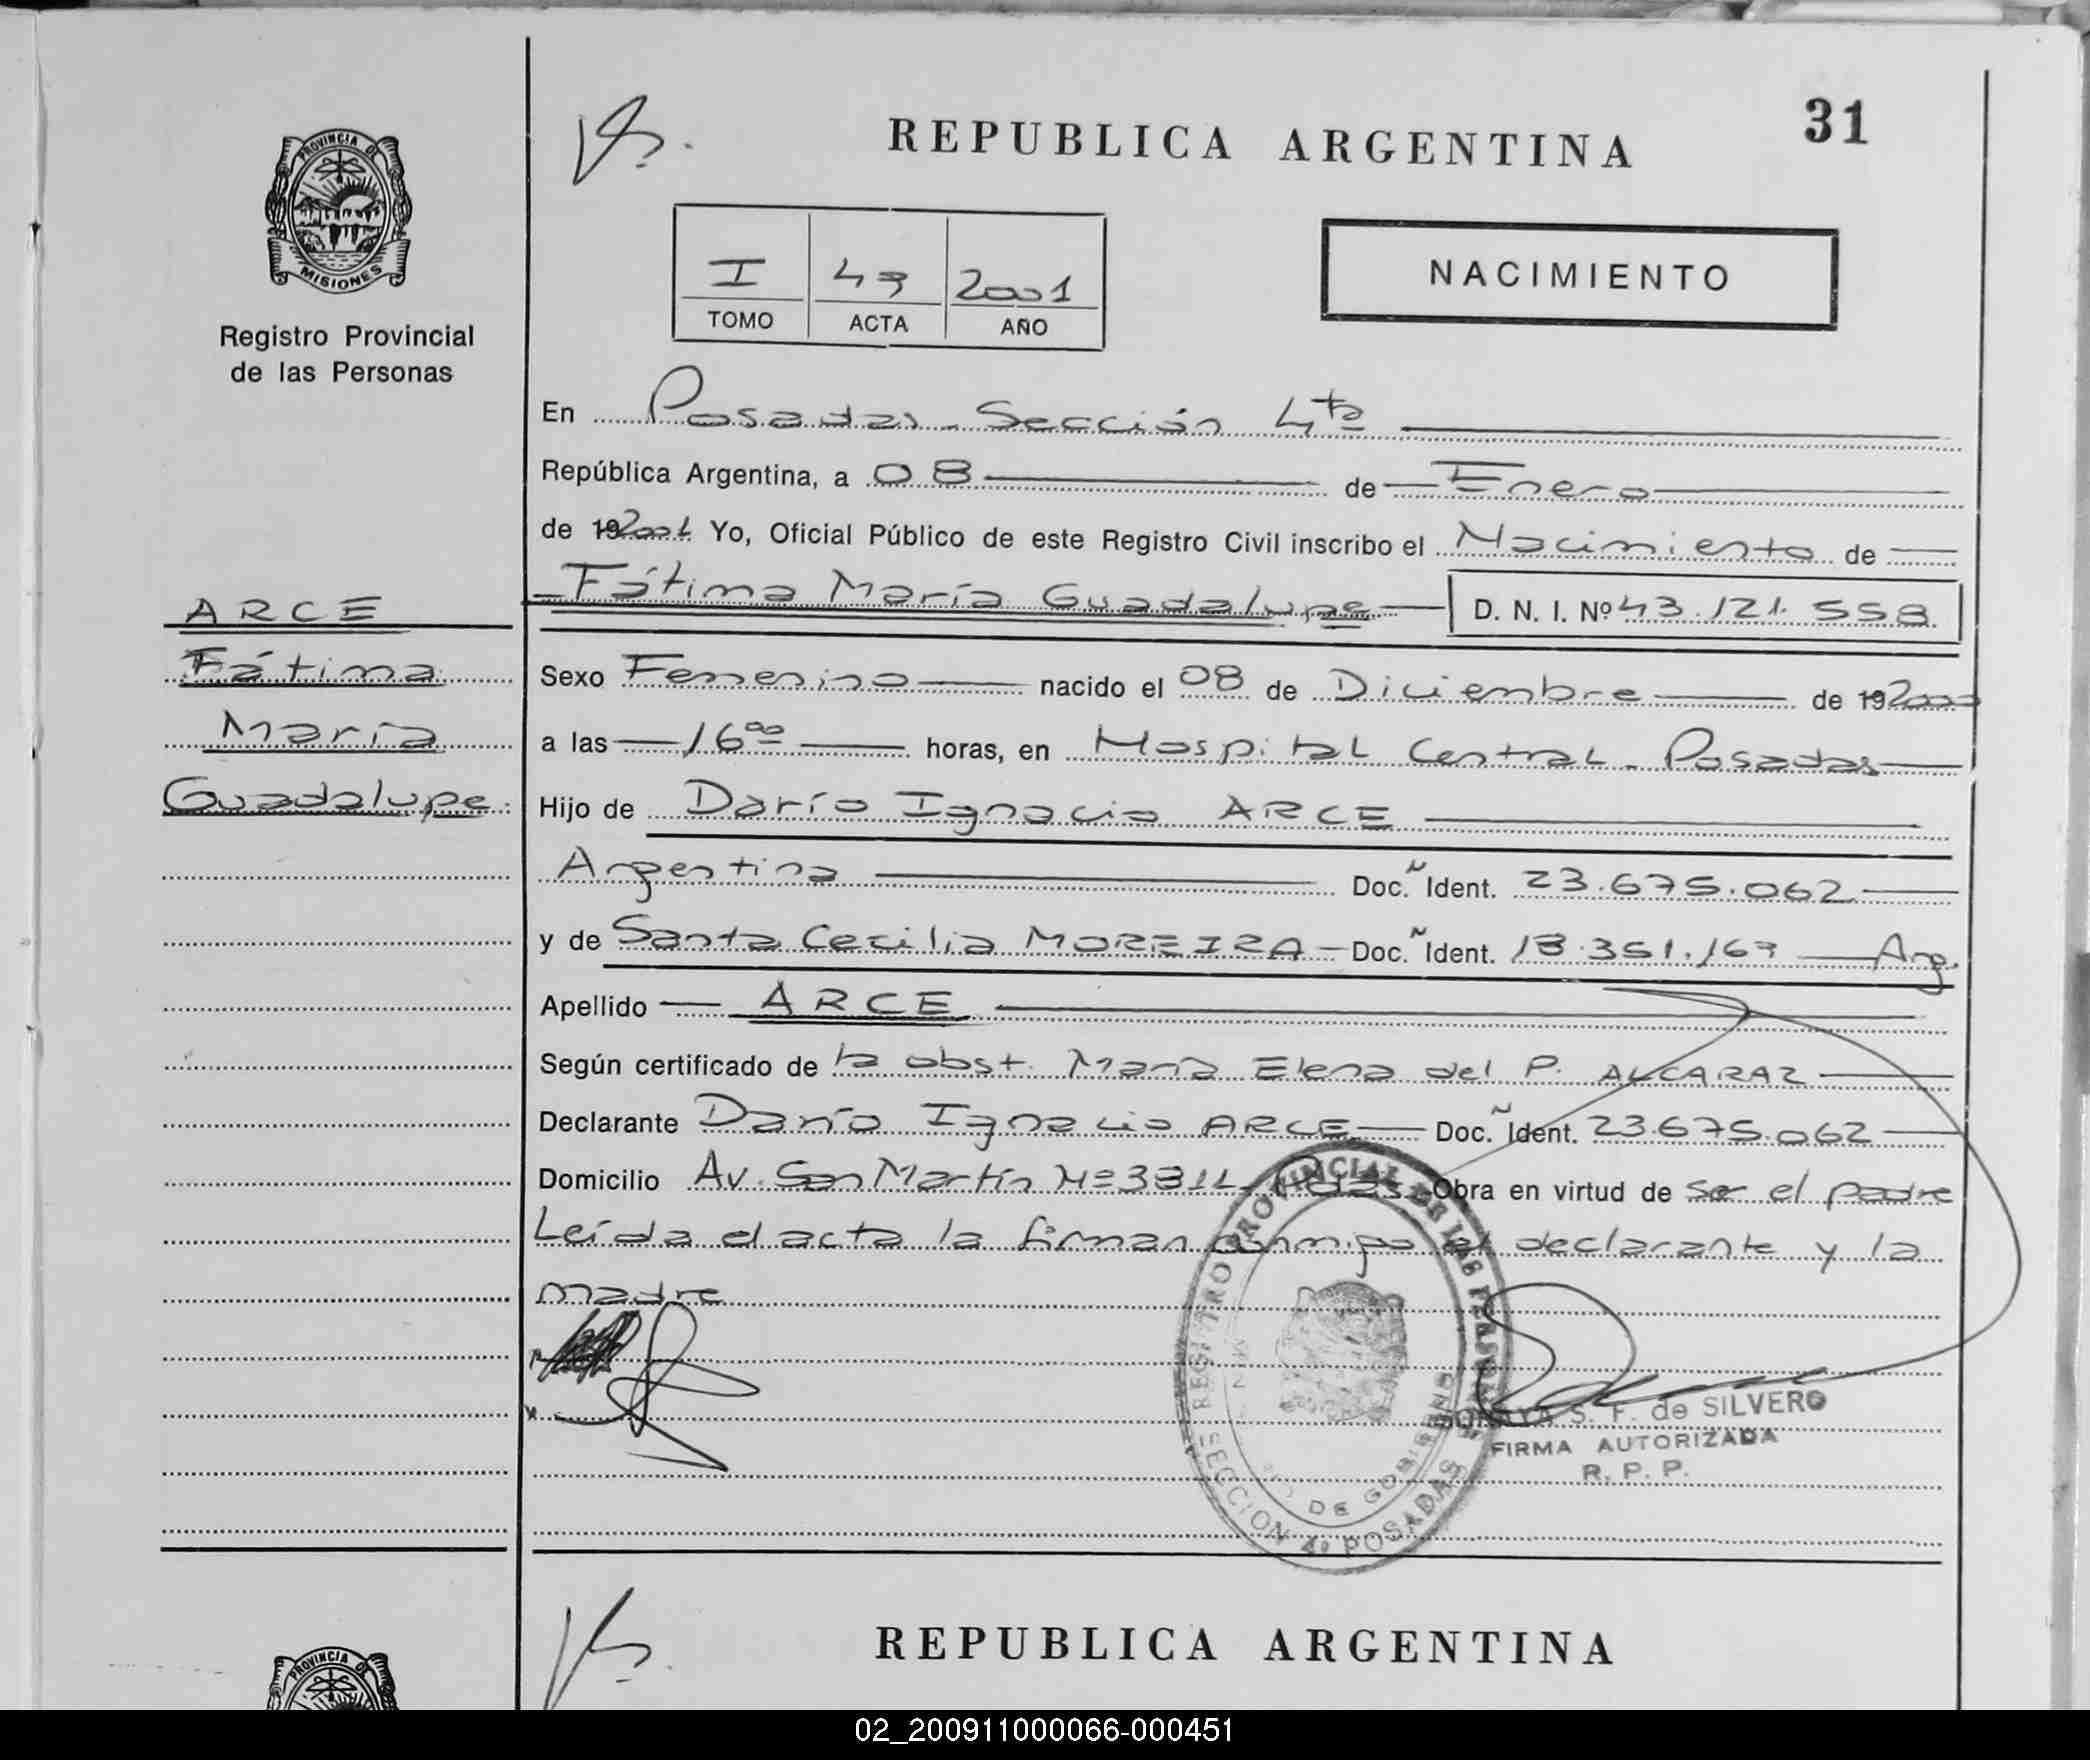 31
REPUBLICA ARGENTINA
PROVINCIA DE
MISIONES
Registro Provincial
de las Personas
NACIMIENTO
I 43 2001
TOMO ACTA AÑO
En Posadas - Sección 4ta
República Argentina, a 08 de Enero
de 192001 Yo, Oficial Público de este Registro Civil inscribo el Nacimiento de
Fátima María Guadalupe D. N. I. Nº 43.121.558
ARCE
Fátima
María
Guadalupe
Sexo Femenino nacido el 08 de Diciembre de 192000
a las 16oo horas, en Hospital Central - Posadas
Hijo de Darío Ignacio ARCE
Argentina Doc. Ident. 23.675.062
y de Santa Cecilia MOREIRA Doc. Ident. 18.351.167 Arg.
Apellido ARCE
Según certificado de la obst. María Elena del P. ALCARAZ
Declarante Darío Ignacio ARCE Doc. Ident. 23.675.062
Domicilio Av. San Martín Nº 3311 Obra en virtud de ser el padre
Leída el acta la firman conmigo el declarante y la
madre
REGISTRO PROVINCIAL DE LAS PERSONAS
DE GOBIERNO
SECCION 4ª POSADAS
S. F. de SILVERO
FIRMA AUTORIZADA
R. P. P.
REPUBLICA ARGENTINA
PROVINCIA DE
02_200911000066-000451